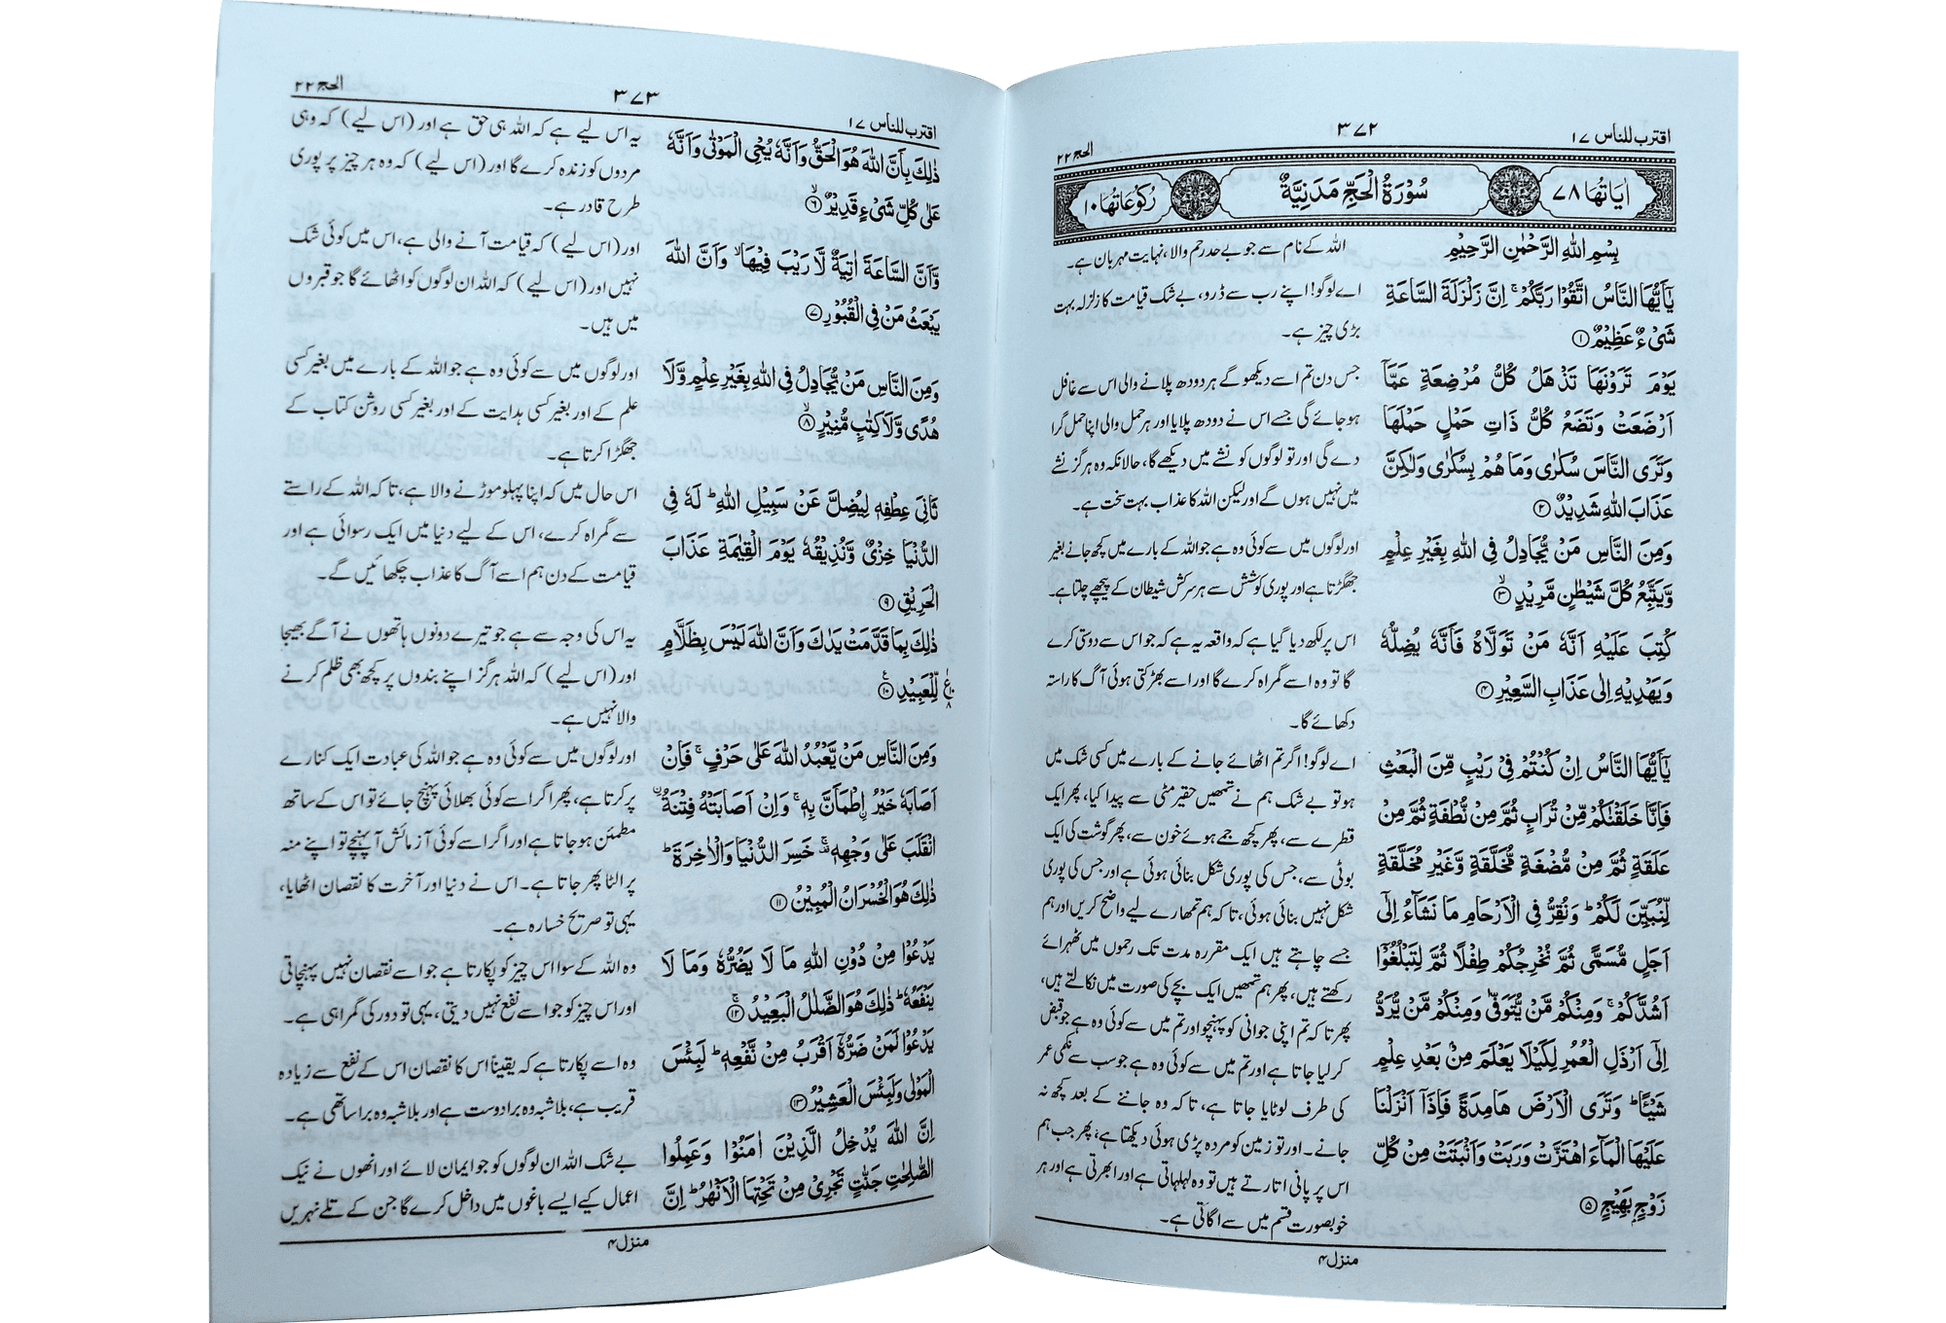 اقترب للناس ۱۷
۳۷۲
الحج ۲۲
اٰیَاتُهَا ۷۸
سُوْرَةُ الْحَجِّ مَدَنِيَّةٌ
رُكُوْعَاتُهَا ۱۰
بِسْمِ اللّٰهِ الرَّحْمٰنِ الرَّحِيْمِ
يٰۤاَيُّهَا النَّاسُ اتَّقُوْا رَبَّكُمْ ۚ اِنَّ زَلْزَلَةَ السَّاعَةِ
شَيْءٌ عَظِيْمٌ ۝۱
يَوْمَ تَرَوْنَهَا تَذْهَلُ كُلُّ مُرْضِعَةٍ عَمَّاۤ
اَرْضَعَتْ وَتَضَعُ كُلُّ ذَاتِ حَمْلٍ حَمْلَهَا
وَتَرَى النَّاسَ سُكٰرٰى وَمَا هُمْ بِسُكٰرٰى وَلٰكِنَّ
عَذَابَ اللّٰهِ شَدِيْدٌ ۝۲
وَمِنَ النَّاسِ مَنْ يُّجَادِلُ فِي اللّٰهِ بِغَيْرِ عِلْمٍ
وَّيَتَّبِعُ كُلَّ شَيْطٰنٍ مَّرِيْدٍ ۝۳
كُتِبَ عَلَيْهِ اَنَّهٗ مَنْ تَوَلَّاهُ فَاَنَّهٗ يُضِلُّهٗ
وَيَهْدِيْهِ اِلٰى عَذَابِ السَّعِيْرِ ۝۴
يٰۤاَيُّهَا النَّاسُ اِنْ كُنْتُمْ فِيْ رَيْبٍ مِّنَ الْبَعْثِ
فَاِنَّا خَلَقْنٰكُمْ مِّنْ تُرَابٍ ثُمَّ مِنْ نُّطْفَةٍ ثُمَّ مِنْ
عَلَقَةٍ ثُمَّ مِنْ مُّضْغَةٍ مُّخَلَّقَةٍ وَّغَيْرِ مُخَلَّقَةٍ
لِّنُبَيِّنَ لَكُمْ ؕ وَنُقِرُّ فِي الْاَرْحَامِ مَا نَشَآءُ اِلٰۤى
اَجَلٍ مُّسَمًّى ثُمَّ نُخْرِجُكُمْ طِفْلًا ثُمَّ لِتَبْلُغُوْۤا
اَشُدَّكُمْ ۚ وَمِنْكُمْ مَّنْ يُّتَوَفّٰى وَمِنْكُمْ مَّنْ يُّرَدُّ
اِلٰۤى اَرْذَلِ الْعُمُرِ لِكَيْلَا يَعْلَمَ مِنْۢ بَعْدِ عِلْمٍ
شَيْـًٔا ؕ وَتَرَى الْاَرْضَ هَامِدَةً فَاِذَاۤ اَنْزَلْنَا
عَلَيْهَا الْمَآءَ اهْتَزَّتْ وَرَبَتْ وَاَنْۢبَتَتْ مِنْ كُلِّ
زَوْجٍۭ بَهِيْجٍ ۝۵
اللہ کے نام سے جو بے حد رحم والا، نہایت مہربان ہے۔
اے لوگو! اپنے رب سے ڈرو، بے شک قیامت کا زلزلہ بہت
بڑی چیز ہے۔
جس دن تم اسے دیکھو گے ہر دودھ پلانے والی اس سے غافل
ہو جائے گی جسے اس نے دودھ پلایا اور ہر حمل والی اپنا حمل گرا
دے گی اور تو لوگوں کو نشے میں دیکھے گا، حالانکہ وہ ہرگز نشے
میں نہیں ہوں گے اور لیکن اللہ کا عذاب بہت سخت ہے۔
اور لوگوں میں سے کوئی وہ ہے جو اللہ کے بارے میں کچھ جانے بغیر
جھگڑتا ہے اور پوری کوشش سے ہر سرکش شیطان کے پیچھے چلتا ہے۔
اس پر لکھ دیا گیا ہے کہ واقعہ یہ ہے کہ جو اس سے دوستی کرے
گا تو وہ اسے گمراہ کرے گا اور اسے بھڑکتی ہوئی آگ کا راستہ
دکھائے گا۔
اے لوگو! اگر تم اٹھائے جانے کے بارے میں کسی شک میں
ہو تو بے شک ہم نے تمھیں حقیر مٹی سے پیدا کیا، پھر ایک
قطرے سے، پھر کچھ جمے ہوئے خون سے، پھر گوشت کی ایک
بوٹی سے، جس کی پوری شکل بنائی ہوئی ہے اور جس کی پوری
شکل نہیں بنائی ہوئی، تاکہ ہم تمھارے لیے واضح کریں اور ہم
جسے چاہتے ہیں ایک مقررہ مدت تک رحموں میں ٹھہرائے
رکھتے ہیں، پھر ہم تمھیں ایک بچے کی صورت میں نکالتے ہیں،
پھر تاکہ تم اپنی جوانی کو پہنچو اور تم میں سے کوئی وہ ہے جو قبض
کر لیا جاتا ہے اور تم میں سے کوئی وہ ہے جو سب سے نکمی عمر
کی طرف لوٹایا جاتا ہے، تاکہ وہ جاننے کے بعد کچھ نہ
جانے۔ اور تو زمین کو مردہ پڑی ہوئی دیکھتا ہے، پھر جب ہم
اس پر پانی اتارتے ہیں تو وہ لہلہاتی ہے اور ابھرتی ہے اور ہر
خوبصورت قسم میں سے اگاتی ہے۔
منزل ۴
اقترب للناس ۱۷
۳۷۳
الحج ۲۲
ذٰلِكَ بِاَنَّ اللّٰهَ هُوَ الْحَقُّ وَاَنَّهٗ يُحْيِ الْمَوْتٰى وَاَنَّهٗ
عَلٰى كُلِّ شَيْءٍ قَدِيْرٌ ۝۶
وَّاَنَّ السَّاعَةَ اٰتِيَةٌ لَّا رَيْبَ فِيْهَا ۙ وَاَنَّ اللّٰهَ
يَبْعَثُ مَنْ فِي الْقُبُوْرِ ۝۷
وَمِنَ النَّاسِ مَنْ يُّجَادِلُ فِي اللّٰهِ بِغَيْرِ عِلْمٍ وَّلَا
هُدًى وَّلَا كِتٰبٍ مُّنِيْرٍ ۝۸
ثَانِيَ عِطْفِهٖ لِيُضِلَّ عَنْ سَبِيْلِ اللّٰهِ ؕ لَهٗ فِي
الدُّنْيَا خِزْيٌ وَّنُذِيْقُهٗ يَوْمَ الْقِيٰمَةِ عَذَابَ
الْحَرِيْقِ ۝۹
ذٰلِكَ بِمَا قَدَّمَتْ يَدٰكَ وَاَنَّ اللّٰهَ لَيْسَ بِظَلَّامٍ
لِّلْعَبِيْدِ ۝۱۰
وَمِنَ النَّاسِ مَنْ يَّعْبُدُ اللّٰهَ عَلٰى حَرْفٍ ۚ فَاِنْ
اَصَابَهٗ خَيْرُ ۨاطْمَاَنَّ بِهٖ ۚ وَاِنْ اَصَابَتْهُ فِتْنَةُ ۨ
انْقَلَبَ عَلٰى وَجْهِهٖ ۚ خَسِرَ الدُّنْيَا وَالْاٰخِرَةَ ؕ
ذٰلِكَ هُوَ الْخُسْرَانُ الْمُبِيْنُ ۝۱۱
يَدْعُوْا مِنْ دُوْنِ اللّٰهِ مَا لَا يَضُرُّهٗ وَمَا لَا
يَنْفَعُهٗ ؕ ذٰلِكَ هُوَ الضَّلٰلُ الْبَعِيْدُ ۝۱۲
يَدْعُوْا لَمَنْ ضَرُّهٗۤ اَقْرَبُ مِنْ نَّفْعِهٖ ؕ لَبِئْسَ
الْمَوْلٰى وَلَبِئْسَ الْعَشِيْرُ ۝۱۳
اِنَّ اللّٰهَ يُدْخِلُ الَّذِيْنَ اٰمَنُوْا وَعَمِلُوا
الصّٰلِحٰتِ جَنّٰتٍ تَجْرِيْ مِنْ تَحْتِهَا الْاَنْهٰرُ ؕ اِنَّ
یہ اس لیے ہے کہ اللہ ہی حق ہے اور (اس لیے) کہ وہی
مردوں کو زندہ کرے گا اور (اس لیے) کہ وہ ہر چیز پر پوری
طرح قادر ہے۔
اور (اس لیے) کہ قیامت آنے والی ہے، اس میں کوئی شک
نہیں اور (اس لیے) کہ اللہ ان لوگوں کو اٹھائے گا جو قبروں
میں ہیں۔
اور لوگوں میں سے کوئی وہ ہے جو اللہ کے بارے میں بغیر کسی
علم کے اور بغیر کسی ہدایت کے اور بغیر کسی روشن کتاب کے
جھگڑا کرتا ہے۔
اس حال میں کہ اپنا پہلو موڑنے والا ہے، تاکہ اللہ کے راستے
سے گمراہ کرے، اس کے لیے دنیا میں ایک رسوائی ہے اور
قیامت کے دن ہم اسے آگ کا عذاب چکھائیں گے۔
یہ اس کی وجہ سے ہے جو تیرے دونوں ہاتھوں نے آگے بھیجا
اور (اس لیے) کہ اللہ ہرگز اپنے بندوں پر کچھ بھی ظلم کرنے
والا نہیں ہے۔
اور لوگوں میں سے کوئی وہ ہے جو اللہ کی عبادت ایک کنارے
پر کرتا ہے، پھر اگر اسے کوئی بھلائی پہنچ جائے تو اس کے ساتھ
مطمئن ہو جاتا ہے اور اگر اسے کوئی آزمائش آ پہنچے تو اپنے منہ
پر الٹا پھر جاتا ہے۔ اس نے دنیا اور آخرت کا نقصان اٹھایا،
یہی تو صریح خسارہ ہے۔
وہ اللہ کے سوا اس چیز کو پکارتا ہے جو اسے نقصان نہیں پہنچاتی
اور اس چیز کو جو اسے نفع نہیں دیتی، یہی تو دور کی گمراہی ہے۔
وہ اسے پکارتا ہے کہ یقیناً اس کا نقصان اس کے نفع سے زیادہ
قریب ہے، بلاشبہ وہ برا دوست ہے اور بلاشبہ وہ برا ساتھی ہے۔
بے شک اللہ ان لوگوں کو جو ایمان لائے اور انھوں نے نیک
اعمال کیے ایسے باغوں میں داخل کرے گا جن کے تلے نہریں
منزل ۴